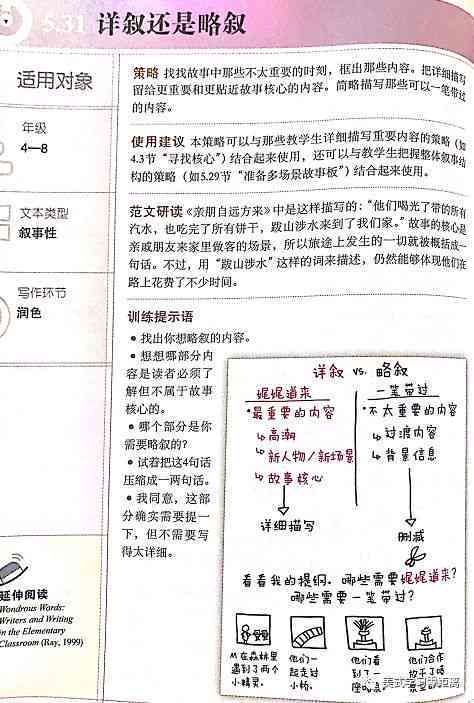 5.31 详叙还是略叙
适用对象
年级
4—8
文本类型
叙事性
写作环节
润色
延伸阅读
Wondrous Words:
Writers and Writing
in the Elementary
Classroom (Ray, 1999)
策略 找找故事中那些不太重要的时刻，框出那些内容。把详细描写
留给更重要和更贴近故事核心的内容。简略描写那些可以一笔带过
的内容。
使用建议 本策略可以与那些教学生详细描写重要内容的策略（如
4.3节“寻找核心”）结合起来使用，还可以与教学生把握整体叙事结
构的策略（如5.29节“准备多场景故事板”）结合起来使用。
范文研读《亲朋自远方来》中是这样描写的：“他们喝光了带的所有
汽水，也吃完了所有饼干，跋山涉水来到了我们家。”故事的核心是
亲戚朋友来家里做客的场景，所以旅途上发生的一切就被概括成一
句话。不过，用“跋山涉水”这样的词来描述，仍然能够体现他们在
路上花费了不少时间。
训练提示语
• 找出你想略叙的内容。
• 想想哪部分内
容是读者必须了
解但不属于故事
核心的。
• 哪个部分是你
需要略叙的？
• 试着把这4句话
压缩成一两句话。
• 我同意，这部
分确实需要提一
下，但不需要写
得太详细。
详叙 vs. 略叙
娓娓道来 一笔带过
•最重要的内容 •不太重要的内容
↳高潮 ↳过渡内容
↳新人物/新场景 ↳背景信息
↳故事核心
详细描写 删减
看看我的提纲。哪些需要娓娓道来？
哪些需要一笔带过？
M在森林里
遇到了两个
小精灵。
他们一
起走过
小桥。
他们看
到了一
他们合作